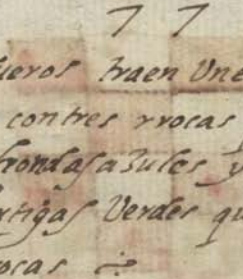 77
traen Vne
contres rrocas
hondas azules y
rtigas Verdes qu
ocas